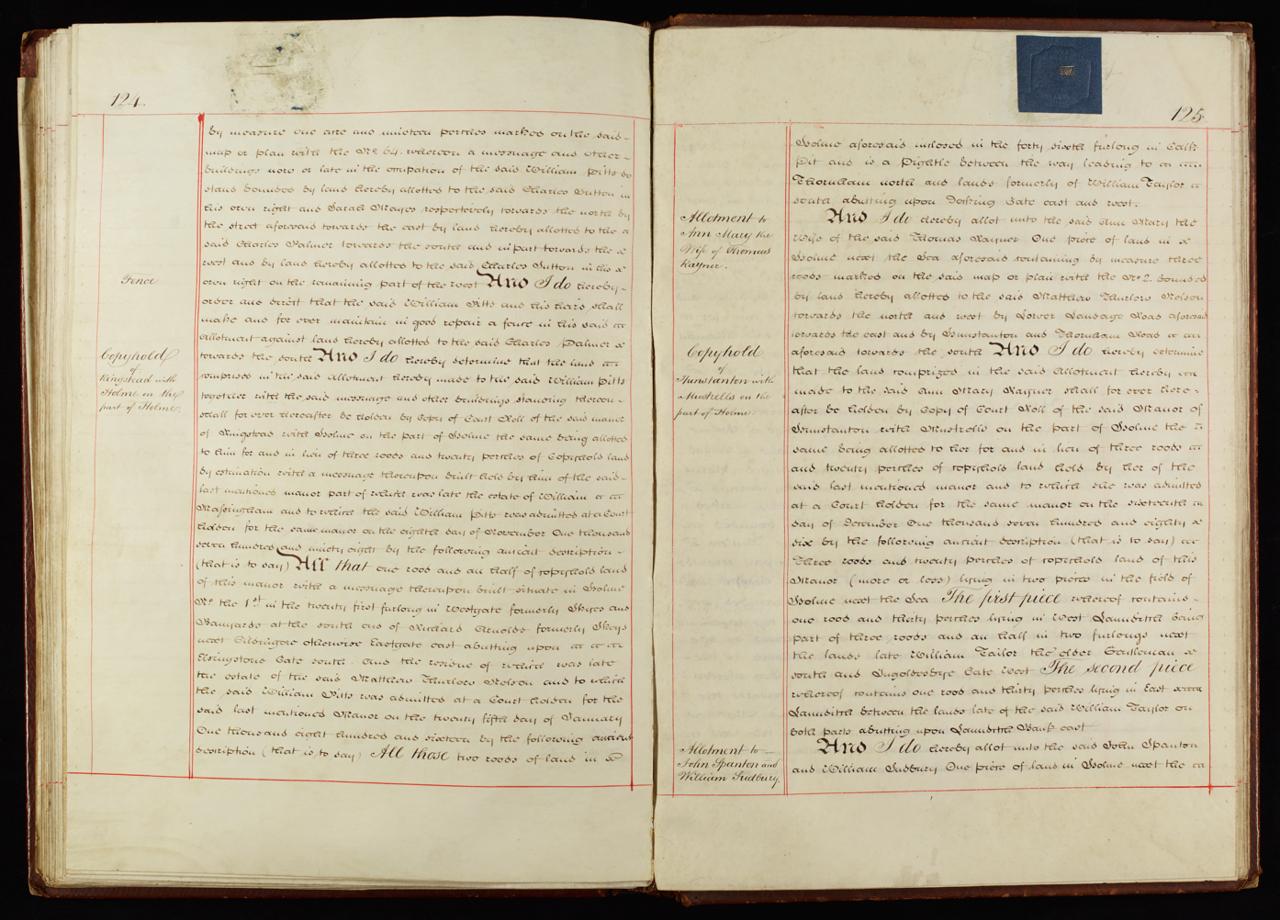 124.
by measure one acre and nineteen perches marked on the said
map or plan with the No. 64. whereon a messuage and other
buildings now or late in the occupation of the said William Pitts do
stand bounded by land hereby allotted to the said Charles Sutton in
his own right and Sarah Mayes respectively towards the north by
the street aforesaid towards the east by land hereby allotted to the
said Charles Palmer towards the south and in part towards the
west and by land hereby allotted to the said Charles Sutton in his
Fence
own right on the remaining part of the west And I do hereby
order and direct that the said William Pitts and his heirs shall
make and for ever maintain in good repair a fence in his said
allotment against land hereby allotted to the said Charles Palmer
Copyhold
of
Ringstead with
Holme on the
part of Holme.
towards the south And I do hereby determine that the land
comprised in the said allotment hereby made to the said William Pitts
together with the said messuage and other buildings standing thereon
shall for ever hereafter be holden by Copy of Court Roll of the said manor
of Ringstead with Holme on the part of Holme the same being allotted
to him for and in lieu of three roods and twenty perches of Copyhold land
by estimation with a messuage thereupon built held by him of the said
last mentioned manor part of which was late the estate of William
Massingham and to which the said William Pitts was admitted at a Court
holden for the same manor on the eighth day of November One thousand
seven hundred and ninety eight by the following ancient description
(that is to say) All that one rood and an half of copyhold land
of this manor with a messuage thereupon built situate in Holme
No. the 1st in the twenty first furlong in Westgate formerly Skyes and
Banyards at the south end of Richard Arnolds formerly Skeys
next Gildingore otherwise Eastgate east abutting upon
Elvingstone Gate south. And the residue of which was late
the estate of the said Matthew Thurlow Nelson and to which
the said William Pitts was admitted at a Court holden for the
said last mentioned Manor on the twenty fifth day of January
One thousand eight hundred and sixteen by the following ancient
description (that is to say) All those two roods of land in
125
Holme aforesaid inclosed in the forty sixth furlong in Calk
Pit and is a Pightle between the way leading to
Thornham north and lands formerly of William Taylor
south abutting upon Docking Gate east and west.
Allotment to
Ann Mary the
Wife of Thomas
Rayner.
And I do hereby allot unto the said Ann Mary the
Wife of the said Thomas Rayner One piece of land in
Holme next the Sea aforesaid containing by measure three
roods marked on the said map or plan with the No. 2 bounded
by land hereby allotted to the said Matthew Thurlow Nelson
towards the north and west by Lower Landage Road aforesaid
towards the east and by Hunstanton and Thornham Road
Copyhold
of
Hunstanton with
Mustrells on the
part of Holme
aforesaid towards the south And I do hereby determine
that the land comprized in the said Allotment hereby
made to the said Ann Mary Rayner shall for ever here-
after be holden by Copy of Court Roll of the said Manor of
Hunstanton with Mustrells on the part of Holme the
same being allotted to her for and in lieu of three roods
and twenty perches of copyhold land held by her of the
said last mentioned manor and to which she was admitted
at a Court holden for the same manor on the sixteenth
day of December One thousand seven hundred and eighty
six by the following ancient description (that is to say)
Three roods and twenty perches of copyhold land of this
Manor (more or less) lying in two pieces in the field of
Holme next the Sea The first piece whereof contains
one rood and thirty perches lying in West Laundith being
part of three roods and an half in two furlongs next
the lands late William Tailor the older Gentleman
south and Ingoldesbye Gate West The second piece
whereof contains one rood and thirty perches lying in East
Laundith between the lands late of the said William Taylor on
both parts abutting upon Laundith Bank east
Allotment to
John Spanton and
William Sudbury.
And I do hereby allot unto the said John Spanton
and William Sudbury One piece of land in Holme next the